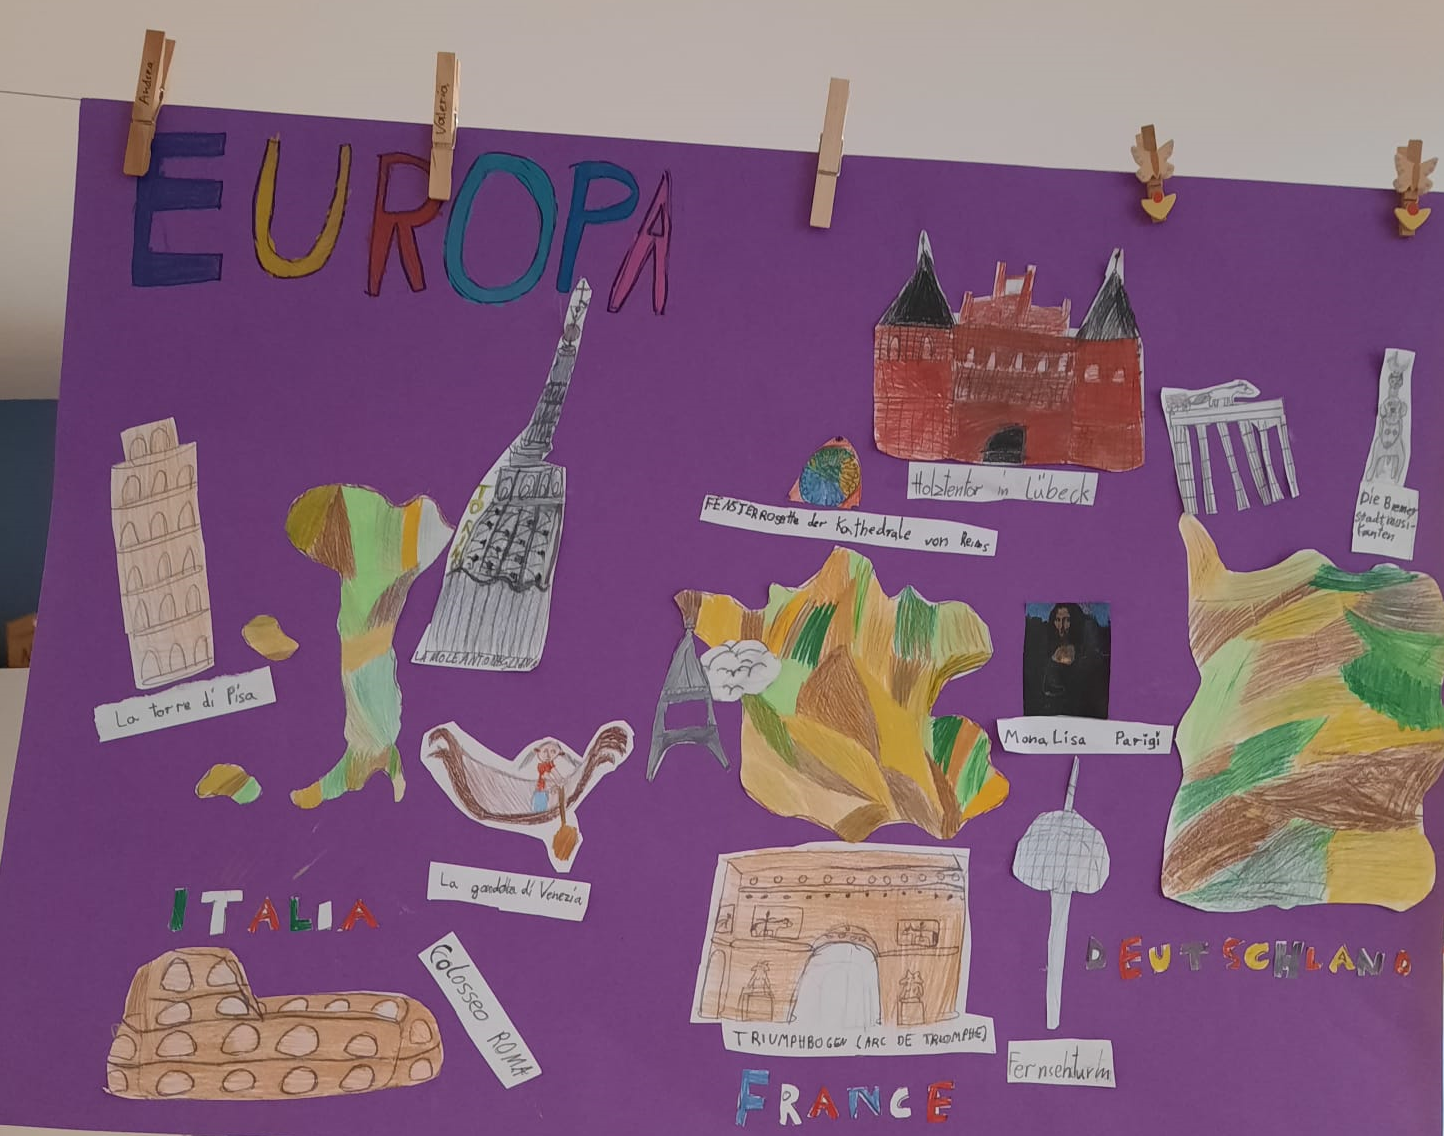 Andrea
Valeria
EUROPA
TORINO
LA MOLE ANTONELLIANA
La torre di Pisa
La gondola di Venezia
ITALIA
Colosseo ROMA
Holztentor in Lübeck
FENSTERRosette der Kathedrale von Reims
Die Bremer
Stadtmusi-
kanten
Mona Lisa Parigi
TRIUMPHBOGEN (ARC DE TRIOMPHE)
FRANCE
Fernsehturm
DEUTSCHLAND